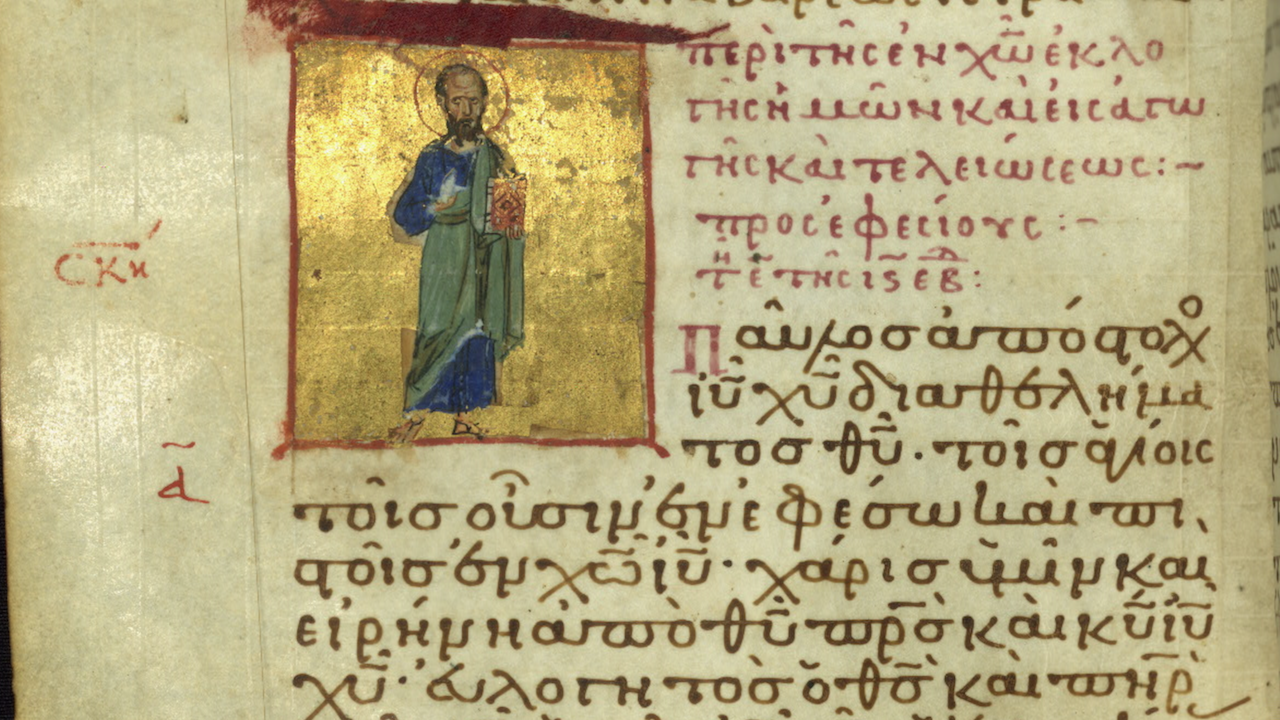 περὶ τῆς ἐν χ̅ω̅ ἐκλο
γῆς ἡμῶν καὶ εἰσαγω
γῆς καὶ τελειώσεως:~
πρὸς ἐφεσίους:~
σκη
Παῦλος ἀπόστολος
ἰ̅υ̅ χ̅υ̅ διὰ θελήμα
τος θ̅υ̅· τοῖς ἁγίοις
α
τοῖς οὖσιν ἐν ἐφέσω καὶ πι
στοῖς ἐν χ̅ω̅ ἰ̅υ̅· χάρις ὑμῖν καὶ
εἰρήνη ἀπὸ θ̅υ̅ π̅ρ̅σ̅ καὶ κ̅υ̅ ἰ̅υ̅
χ̅υ̅· εὐλογητὸς ὁ θ̅σ̅ καὶ π̅η̅ρ̅